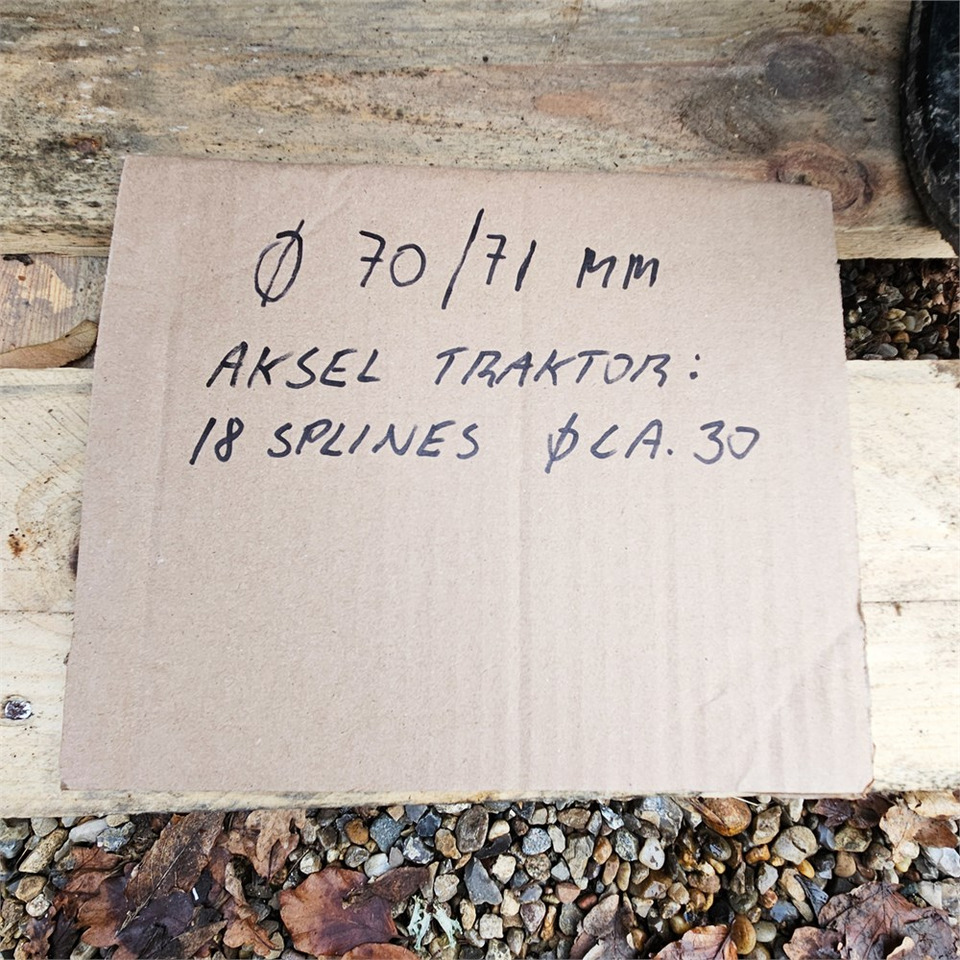 Ø 70/71 MM
AKSEL TRAKTOR:
18 SPLINES Ø CA. 30